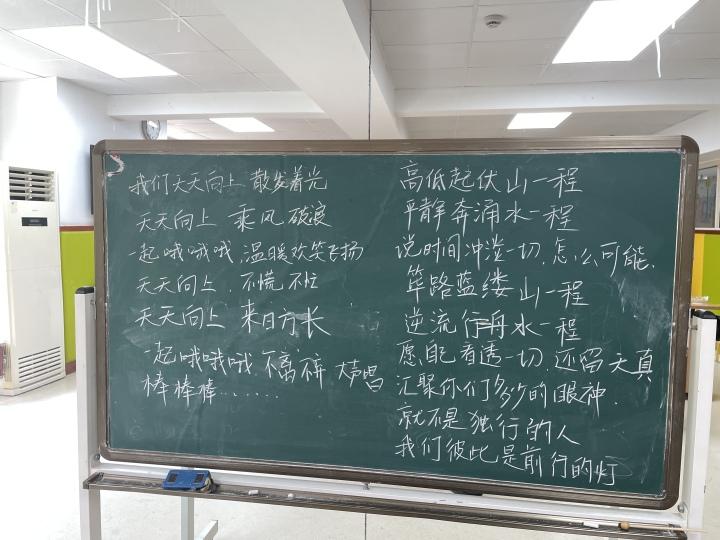 我们天天向上 散发着光
天天向上 乘风破浪
一起哦哦哦,温暖欢笑飞扬
天天向上,不慌不忙
天天向上 来日方长
一起哦哦哦 不离不弃 大声唱
棒棒棒......
高低起伏山一程
平静奔涌水一程
说时间冲淡一切,怎么可能,
筚路蓝缕山一程
逆流行舟水一程
愿自己看透一切,还留天真
汇聚你们多少的眼神,
就不是独行的人
我们彼此是前行的灯